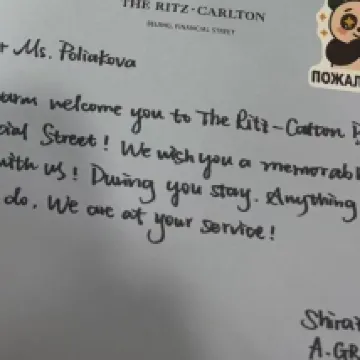 THE RITZ-CARLTON
BEIJING, FINANCIAL STREET
Ms. Poliakova
welcome you to The Ritz-Carlton
Street! We wish you a
with us! During you stay. Anything
do. We are at your service!
ПОЖАЛ
Shira
A.GR